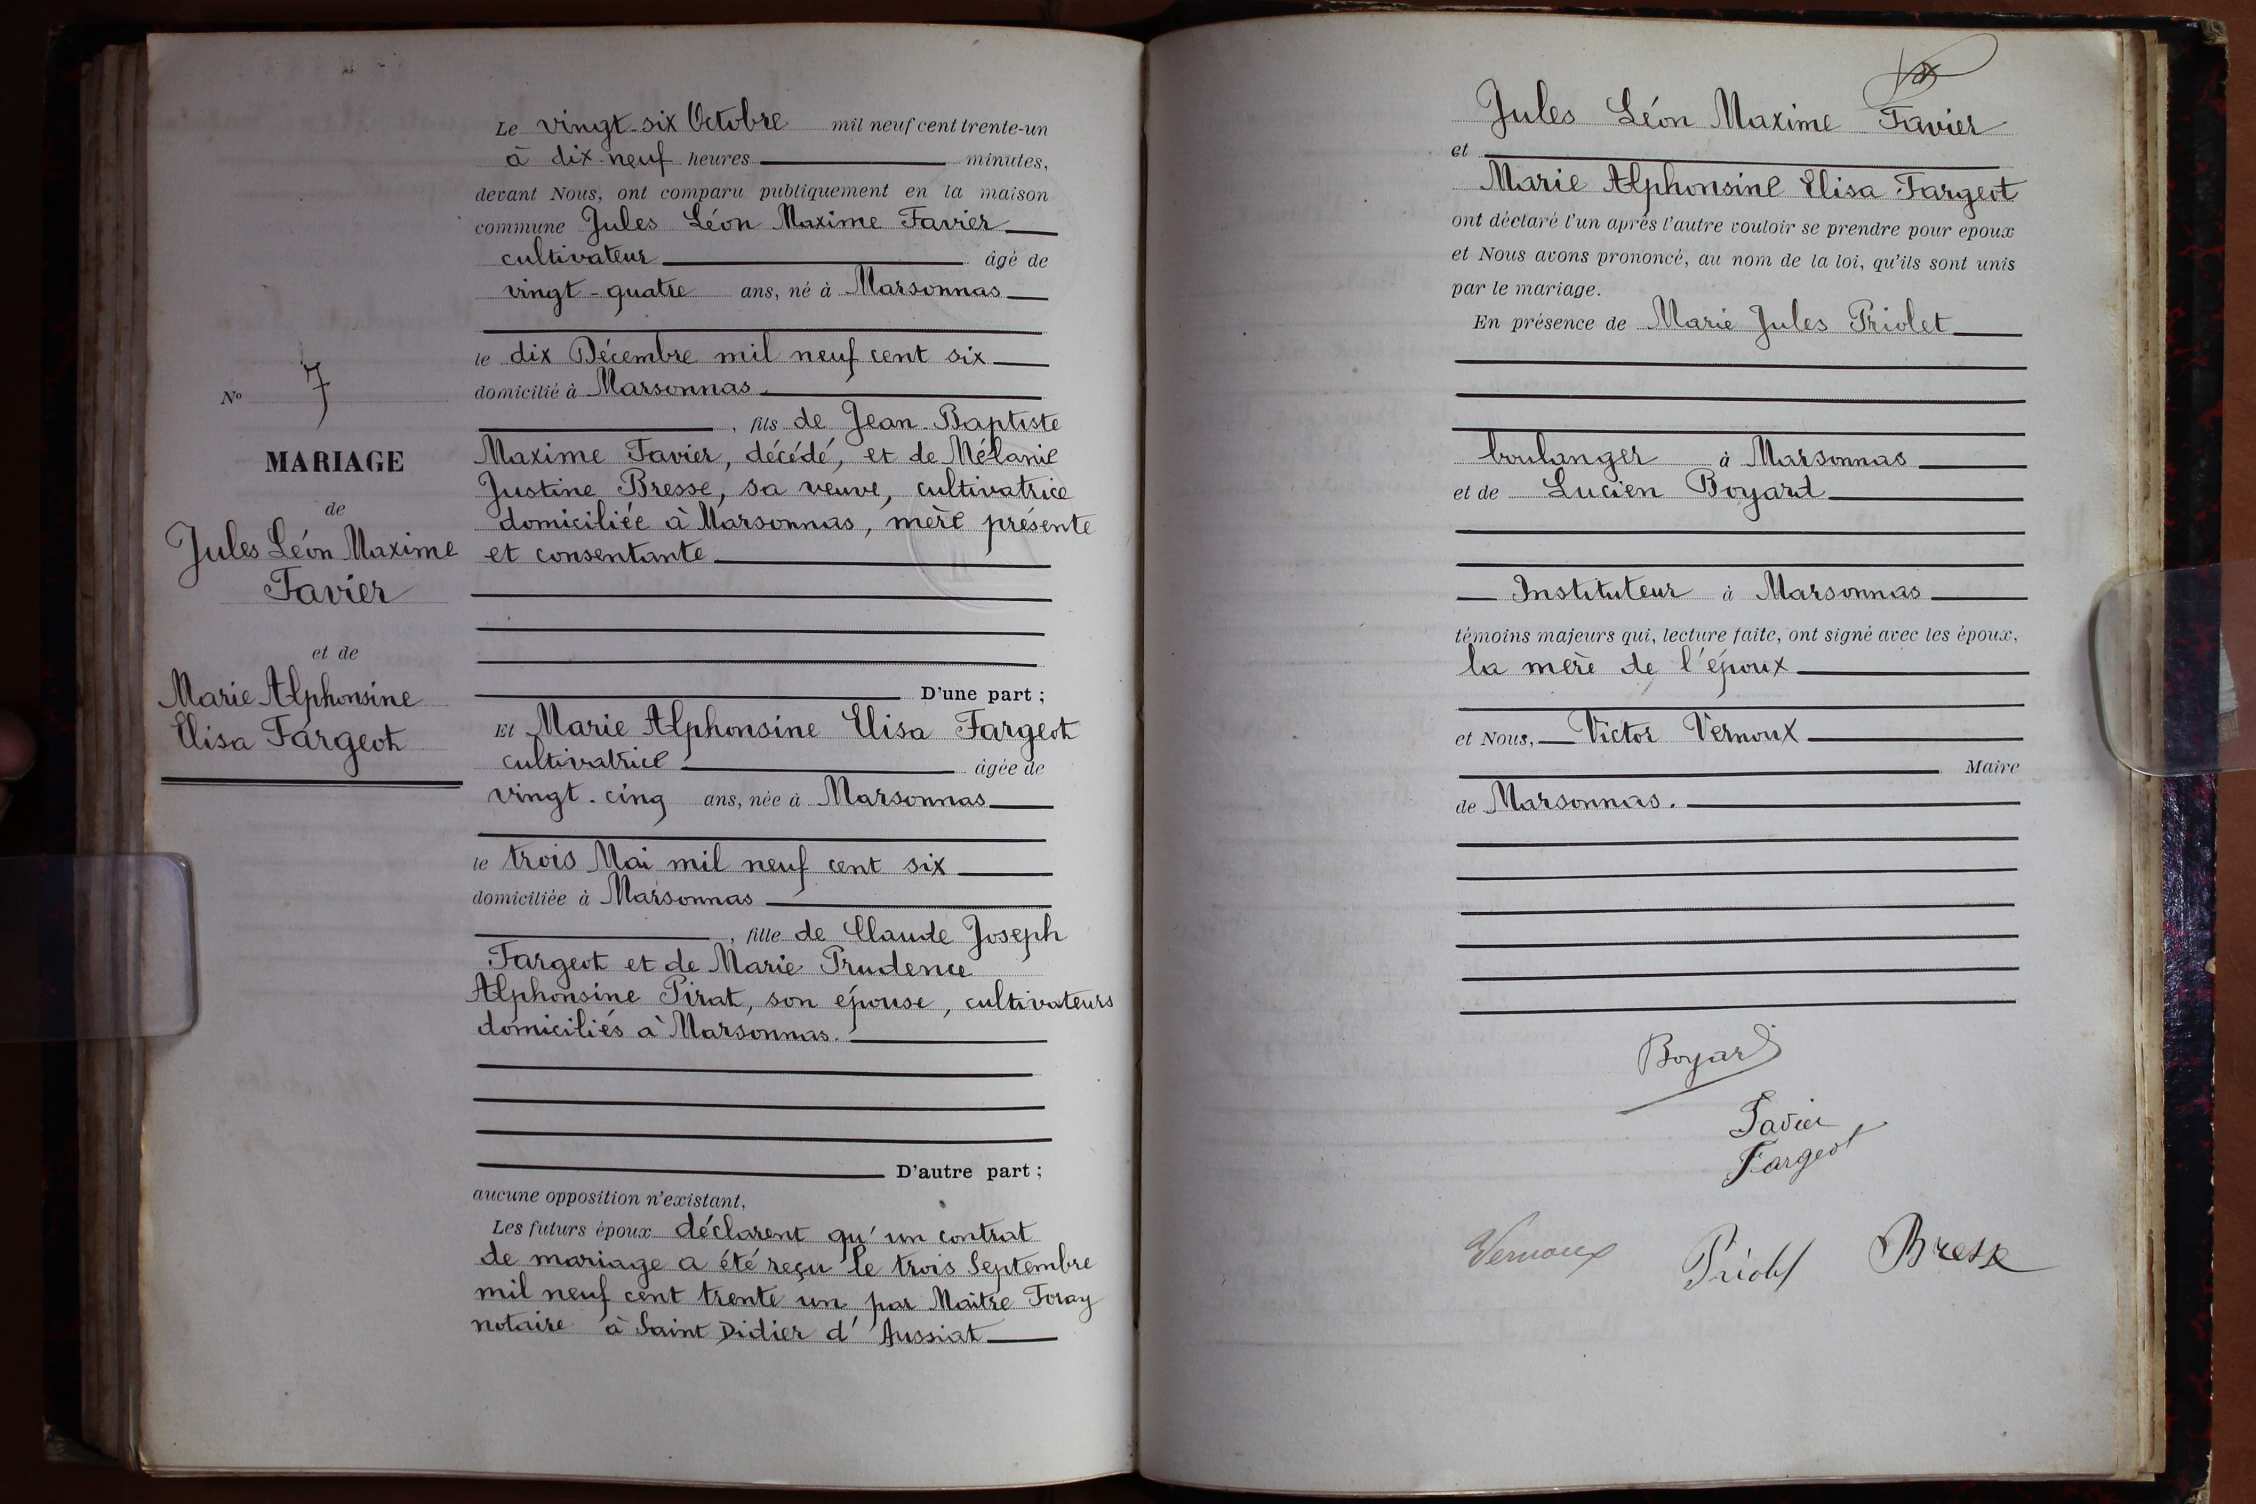 Le vingt-six Octobre mil neuf cent trente-un
à dix-neuf heures minutes,
devant Nous, ont comparu publiquement en la maison
commune Jules Léon Maxime Favier
cultivateur âgé de
vingt-quatre ans, né à Marsonnas
le dix Décembre mil neuf cent six
domicilié à Marsonnas
, fils de Jean-Baptiste
Maxime Favier, décédé, et de Mélanie
Justine Bresse, sa veuve, cultivatrice
domiciliée à Marsonnas, mère présente
et consentante
D'une part ;
Et Marie Alphonsine Elisa Fargeot
cultivatrice âgée de
vingt-cinq ans, née à Marsonnas
le trois Mai mil neuf cent six
domiciliée à Marsonnas
, fille de Claude Joseph
Fargeot et de Marie Prudence
Alphonsine Pirat, son épouse, cultivateurs
domiciliés à Marsonnas.
D'autre part ;
aucune opposition n'existant,
Les futurs époux déclarent qu'un contrat
de mariage a été reçu le trois Septembre
mil neuf cent trente un par Maître Foray
notaire à Saint Didier d'Aussiat
No 7
MARIAGE
de
Jules Léon Maxime
Favier
et de
Marie Alphonsine
Elisa Fargeot
Jules Léon Maxime Favier
et
Marie Alphonsine Elisa Fargeot
ont déclaré l'un après l'autre vouloir se prendre pour époux
et Nous avons prononcé, au nom de la loi, qu'ils sont unis
par le mariage.
En présence de Marie Jules Priolet
boulanger à Marsonnas
et de Lucien Boyard
Instituteur à Marsonnas
témoins majeurs qui, lecture faite, ont signé avec les époux,
la mère de l'époux
et Nous, Victor Vernoux
Maire
de Marsonnas.
Boyard
Favier
Fargeot
Vernoux Priolet Bresse